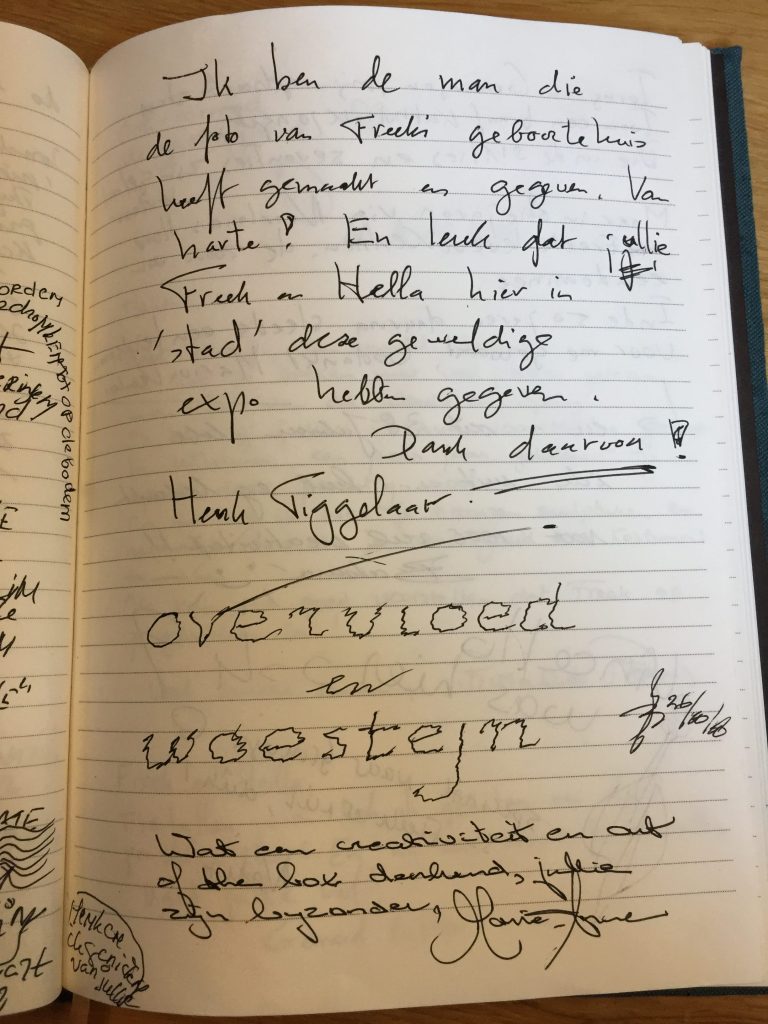 Ik ben de man die
de foto van Freek's geboortehuis
heeft gemaakt en gegeven. Van
harte! En leuk dat jullie
Freek en Hella hier in
'stad' deze geweldige
expo hebben gegeven.
Dank daarvoor!
Henk Tiggelaar.
overvloed
en
woestejn
Wat een creativiteit en out
of the box denkend, jullie
zijn byzonder, Marie-Anne
Henk en
van jullie
op de bodem